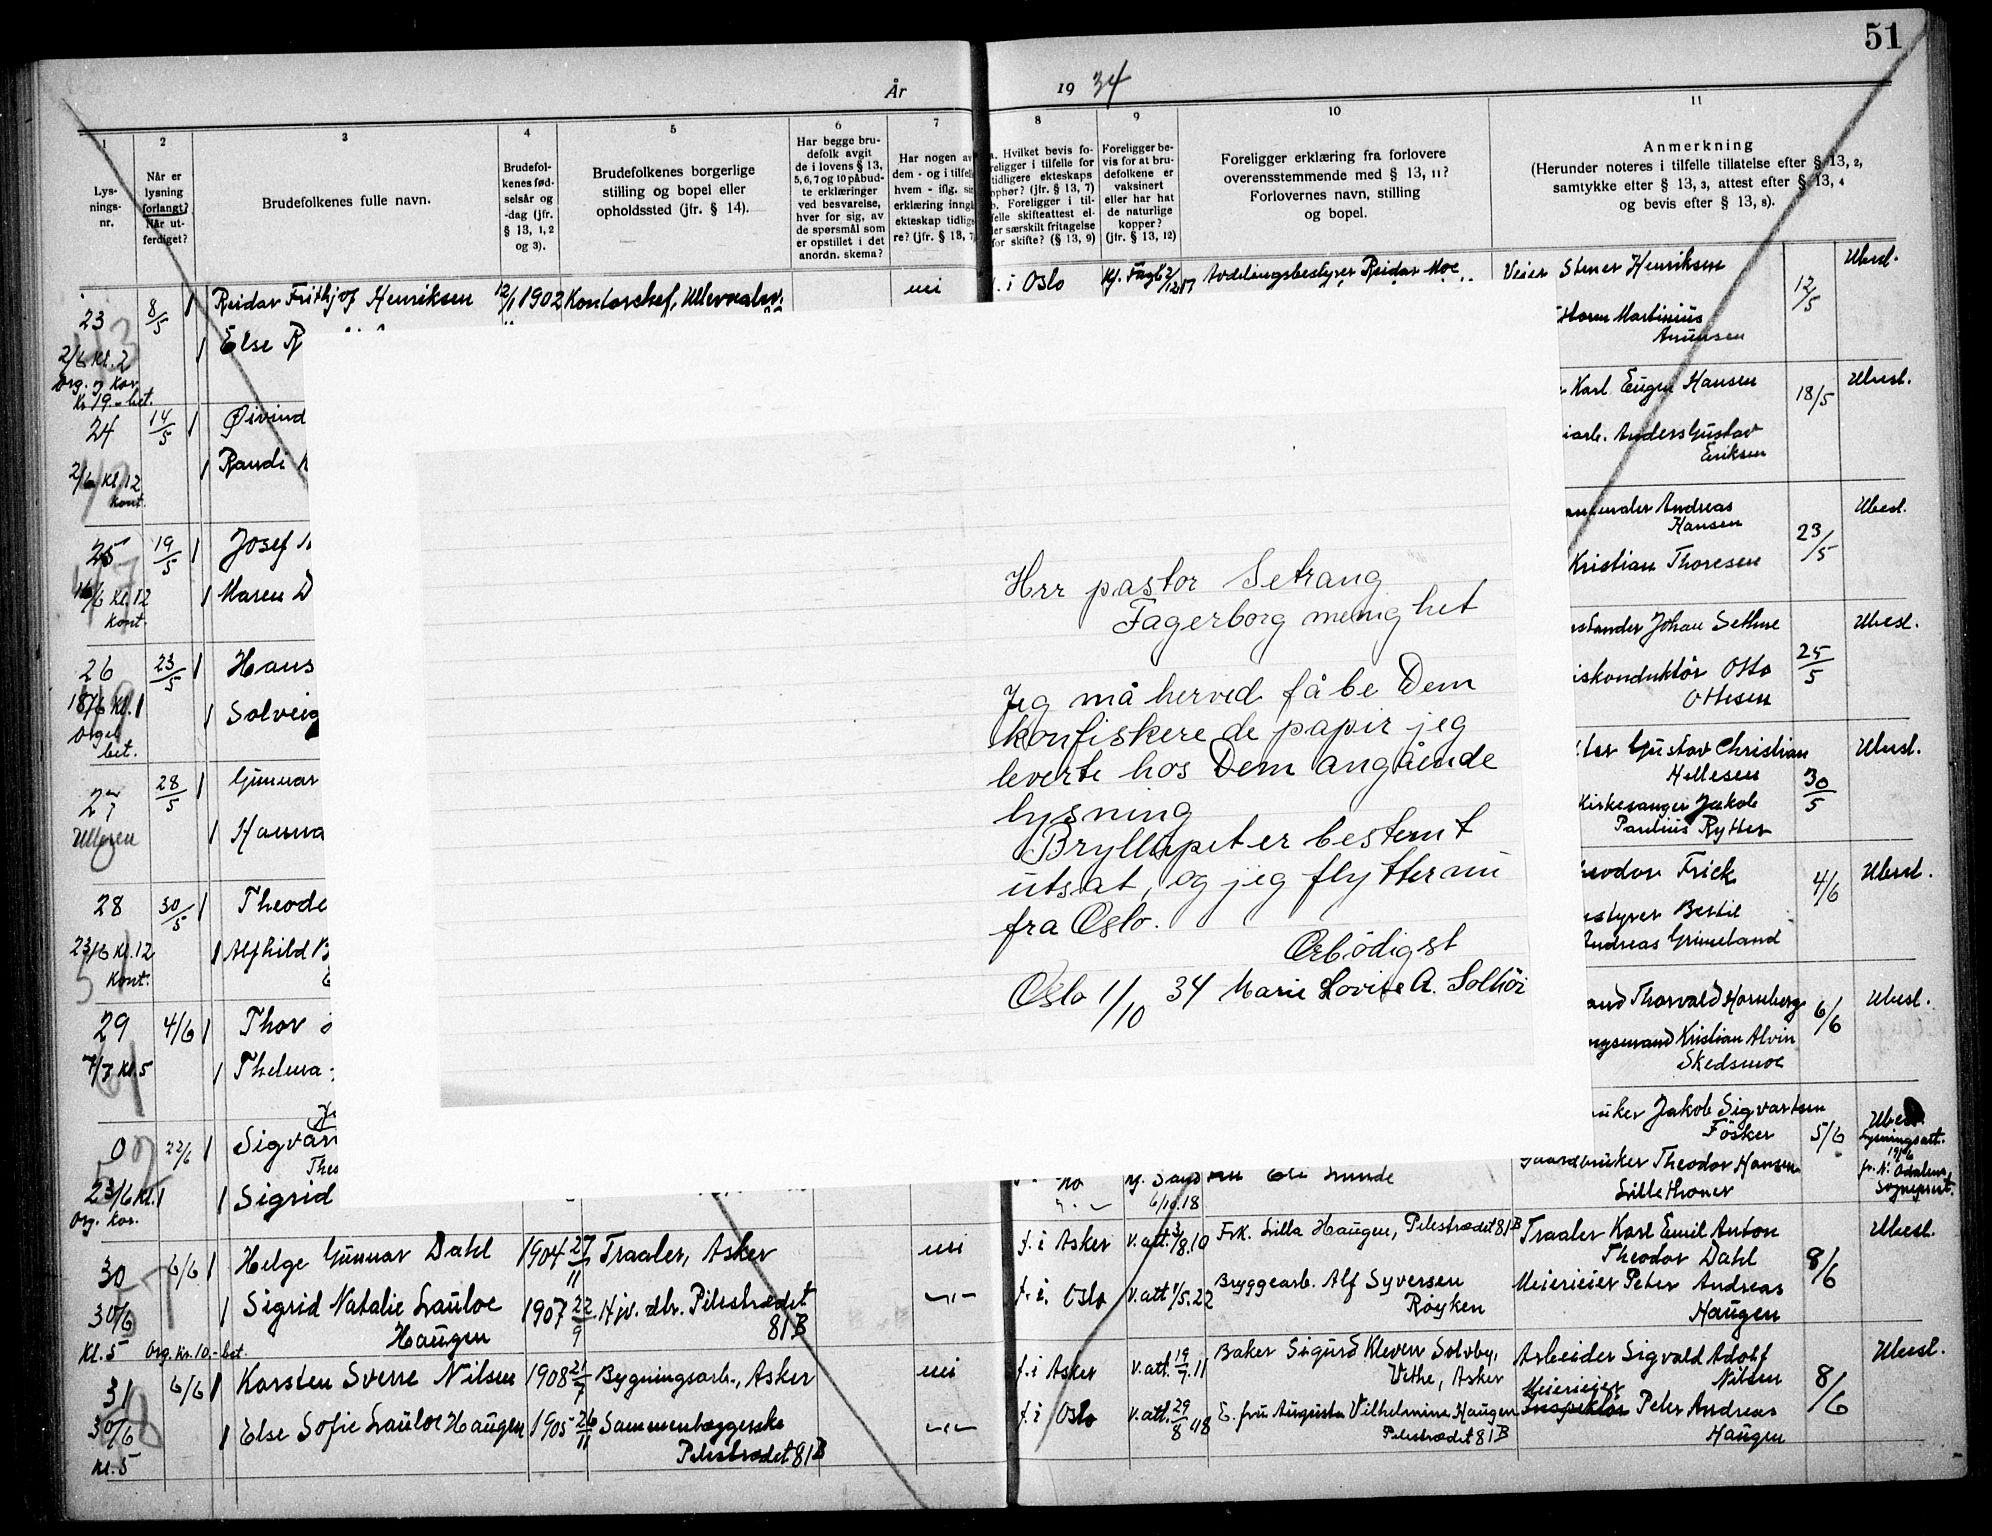 51
År 1934
1
Lys-
nings-
nr.
2
Når er
lysning
forlangt?
Når ut-
ferdiget?
3
Brudefolkenes fulle navn.
4
Brudefol-
kenes fød-
selsår og
-dag (jfr.
§ 13, 1, 2
og 3).
5
Brudefolkenes borgerlige
stilling og bopel eller
opholdssted (jfr. § 14).
6
Har begge bru-
defolk avgit
de i lovens § 13,
5, 6, 7 og 10 påbud-
te erklæringer
ved besvarelse,
hver for sig, av
de spørsmål som
er opstillet i det
anordn. skema?
7
Har nogen av
dem - og i tilfelle
hvem - iflg. sin
erklæring inngå
ekteskap tidlige
re? (jfr. § 13, 7
8
a. Hvilket bevis fo-
religger i tilfelle for
tidligere ekteskaps
ophør? (jfr. § 13, 7)
b. Foreligger i til-
felle skifteattest el-
ler særskilt fritagelse
for skifte? (§ 13, 9)
9
Foreligger be-
vis for at bru-
defolkene er
vaksinert
eller har hat
de naturlige
kopper?
(jfr. § 13, 12)
10
Foreligger erklæring fra forlovere
overensstemmende med § 13, 11?
Forlovernes navn, stilling
og bopel.
11
Anmerkning
(Herunder noteres i tilfelle tillatelse efter § 13, 2,
samtykke efter § 13, 3, attest efter § 13, 4
og bevis efter § 13, 8).
23 8/5 Reidar Frithjof Henriksen 12/1 1902 Kontorchef, Ullevaalsv. nei f. i Oslo Avdelingsbestyrer Reidar Moe Veier Stener Henriksen 12/5 Ubesl.
Else
2/6 Kl. 2
Org. og Kor
Kr 19.- bet.
Martinius
Amunsen
24 14/5 Øivind
Karl Eugen Hansen 18/5 Ubesl.
2/6 Kl. 12
Kont.
Randi
Anders Gustav
Eriksen
25 19/5 Josef
Andreas
Hansen 23/5 Ubesl.
16/6 Kl. 12
Kont.
Maren D
Kristian Thoresen
26 23/5 Hans
Johan Sethne 25/5 Ubesl.
18/6 Kl. 1
Orgel
bet.
Solveig
Otto
Ottesen
27 28/5 Gunnar
Gustav Christian
Hellesen 30/5 Ubesl.
Ullern
Hanna
Kirkesanger Jakob
Paulius Rytter
28 30/5 Theodo
Frick 4/6 Ubesl.
23/6 Kl. 12
Kont.
Alfhild B
Bertil
Andreas Grimeland
29 4/6 Thor
Thorvald Hornberg 6/6 Ubesl.
7/7 Kl. 5
Thelma
Kristian Alvin
Skedsmoe
0 22/6 Sigvar
Jakob Sigvartsen
Fösker 5/6 Ubesl.
Lysningsatt.
fr. N. Odalens
Sogneprest.
23/6 Kl. 1
Org. Kor.
Sigrid
6/10.18
Gaardbruker Theodor Hansen
Lillethoner
30 6/6 Helge Gunnar Dahl 1904 27/11 Traaler, Asker nei f. i Asker v. att. 3/8.10 Frk. Lilla Haugen, Pilestrædet 81B Traaler Karl Emil Anton
Theodor Dahl 8/6 Ubesl.
30/6
Kl. 5 Org. Kr. 10.- bet.
Sigrid Natalie Lauloe
Haugen 1907 22/9 Hjv. dtr. Pilestrædet
81B -"- f. i. Oslo v. att 1/5.22 Bryggearb. Alf Syversen
Røyken Meierieier Peter Andreas
Haugen
31 6/6 Karsten Sverre Nilsen 1908 21/7 Bygningsarb., Asker nei f. i Asker v. att. 19/7.11 Baker Sigurd Kleven Solvby,
Vethe, Asker Arbeider Sigvald Adolf
Nilsen 8/6 Ubesl.
30/6
Kl. 5
Else Sofie Lauloe Haugen 1905 26/11 Sammenlæggerske
Pilestrædet 81B -"- f. i Oslo v. att. 29/8.18 E. fru Augusta Vilhelmine Haugen
Pilestrædet 81B Meierieier
Inspektör Peter Andreas
Haugen
Hrr pastor Setrang
Fagerborg menighet
Jeg må herved få be Dem
konfiskere de papir jeg
leverte hos Dem angående
lysning
Bryllupet er bestemt
utsat, og jeg flytter nu
fra Oslo.
Ærbödigst
Oslo 1/10 34 Marie Lovise A. Solhöi